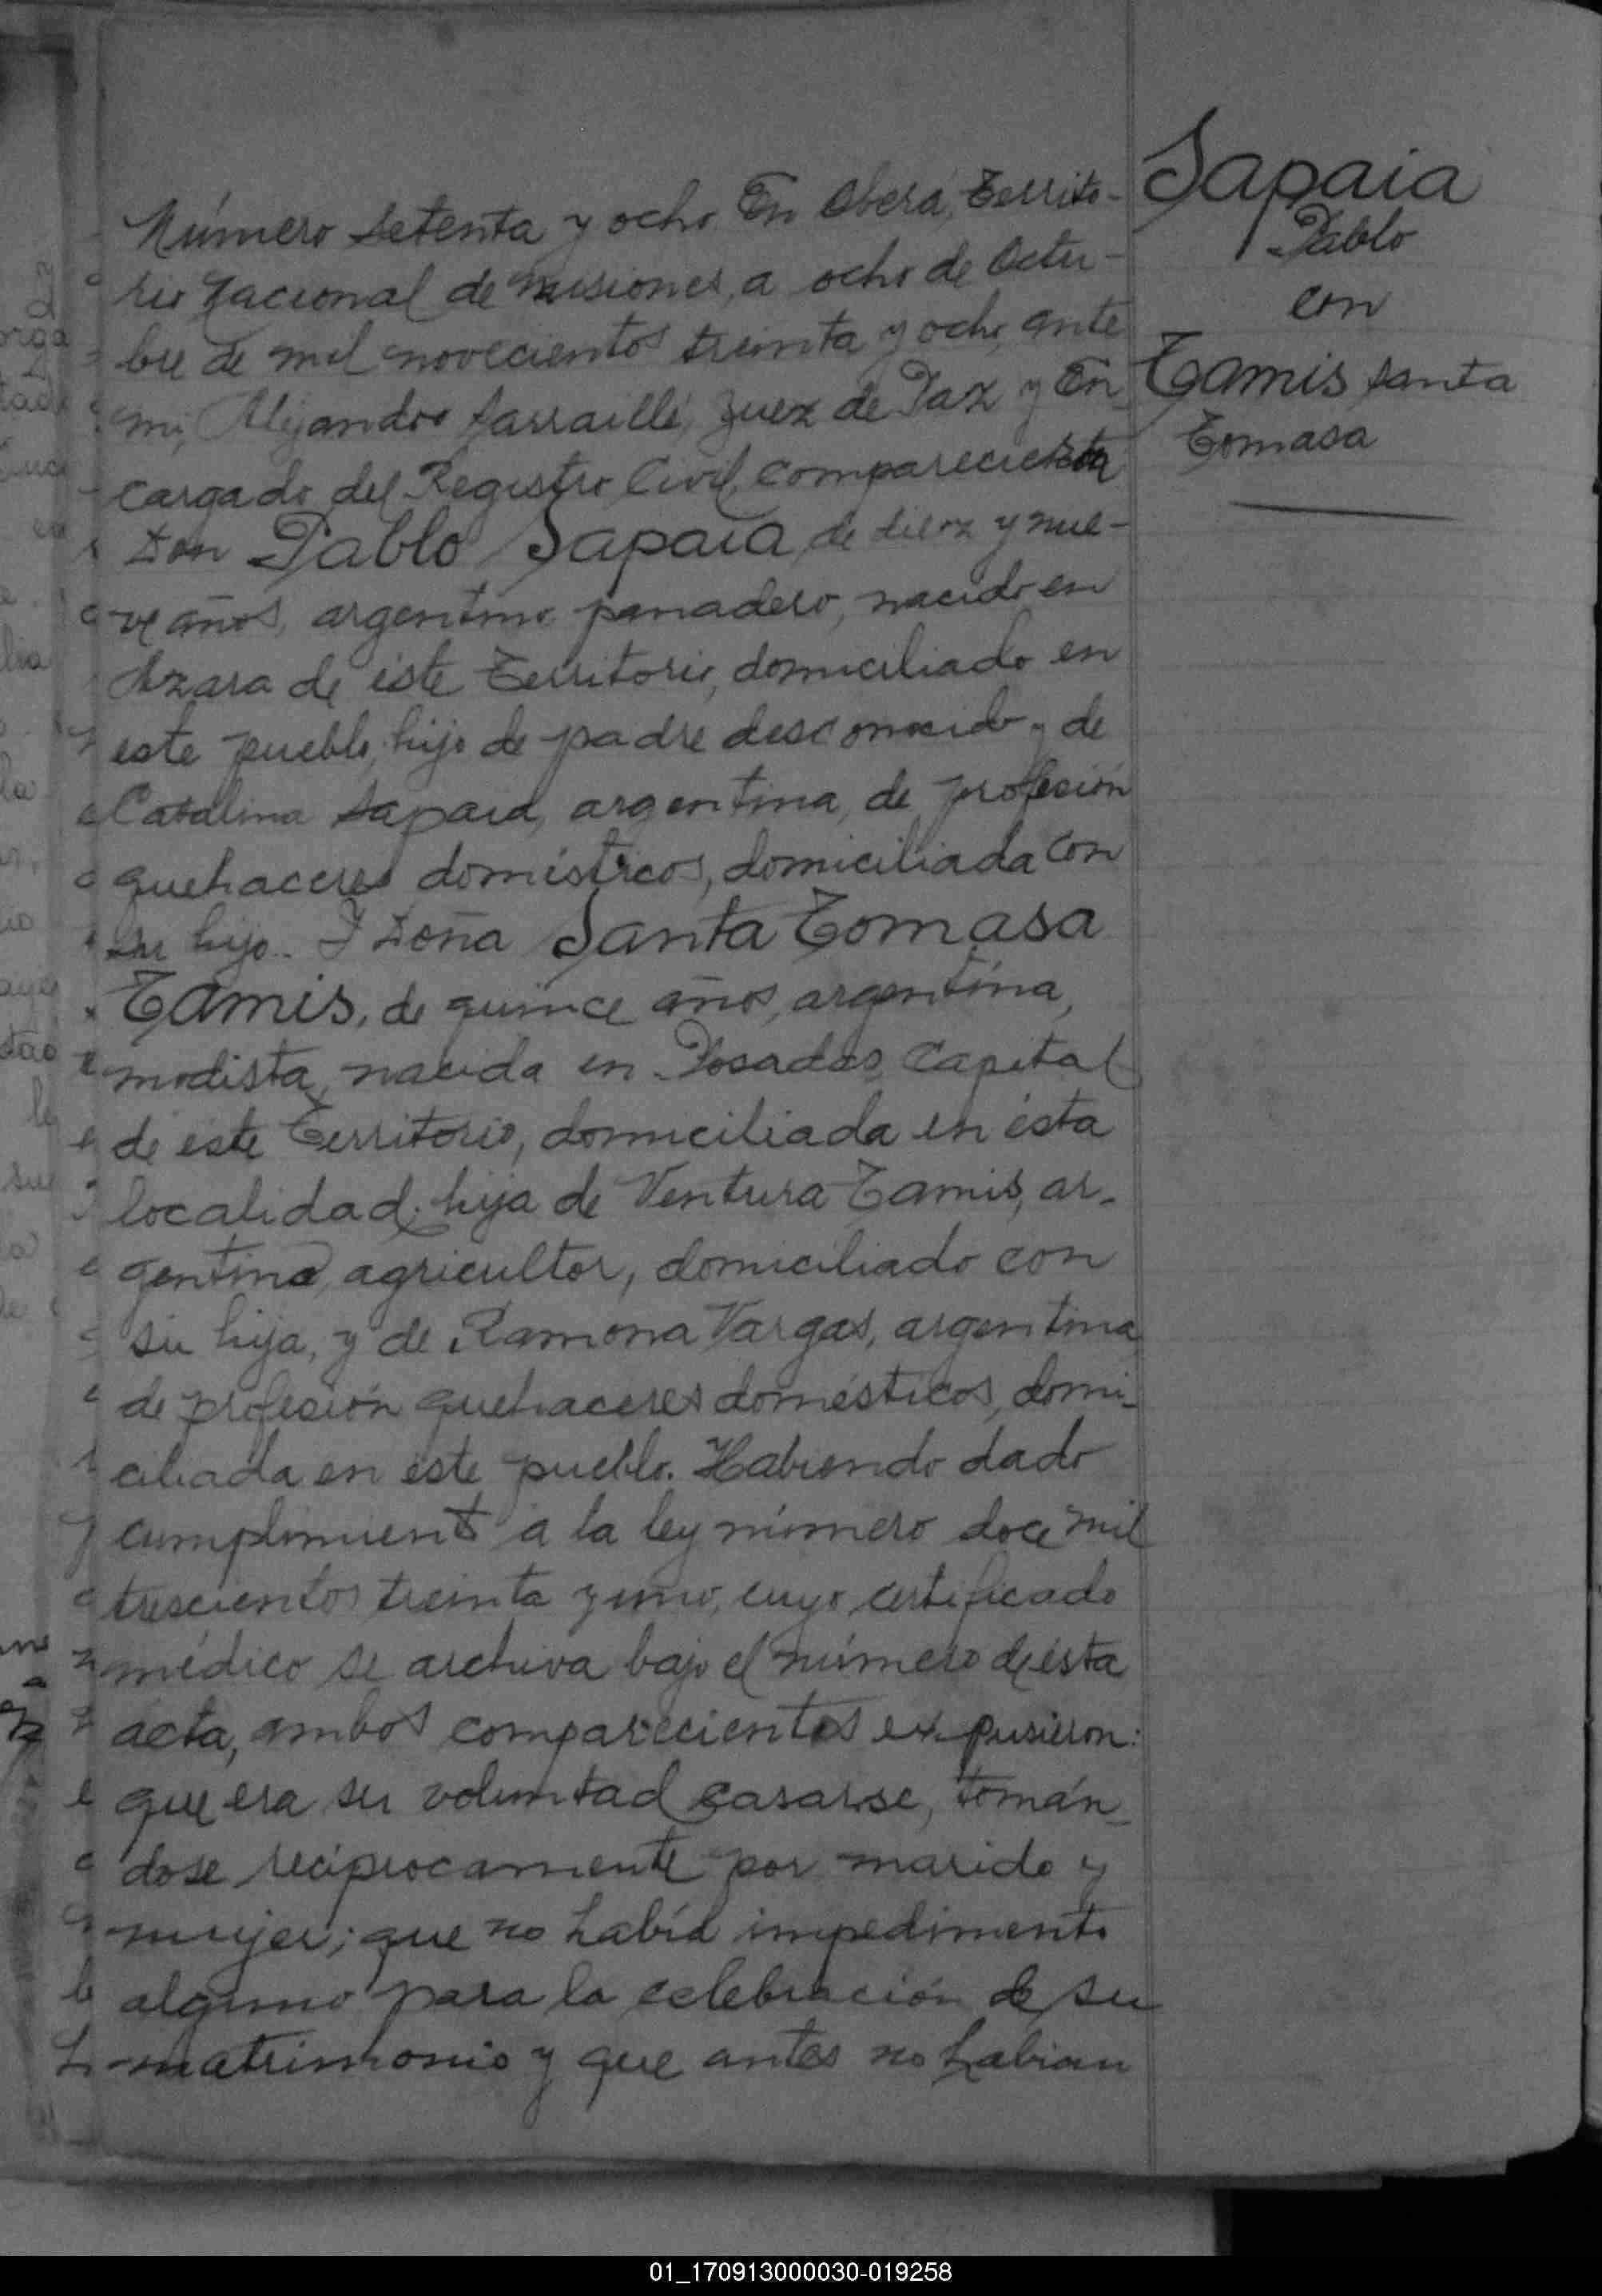 Número setenta y ocho. En Oberá, Territo-
rio Nacional de Misiones, a ocho de Octu-
bre de mil novecientos treinta y ocho, ante
mi, Alejandro Sarraillé, Juez de Paz y En-
cargado del Registro Civil, comparecieron
Don Pablo Sapaia, de diez y nue-
ve años, argentino, panadero, nacido en
Azara de éste Territorio, domiciliado en
este pueblo, hijo de padre desconocido y de
Catalina Sapaia, argentina, de profesión
quehaceres domésticos, domiciliada con
su hijo.. I Doña Santa Tomasa
Tamis, de quince años, argentina,
modista, nacida en Posadas, Capital
de éste Territorio, domiciliada en ésta
localidad, hija de Ventura Tamis, ar-
gentino, agricultor, domiciliado con
su hija, y de Ramona Vargas, argentina,
de profesión quehaceres domésticos, domi-
ciliada en éste pueblo. Habiendo dado
cumplimiento a la ley número doce mil
trescientos treinta y uno, cuyo certificado
médico se archiva bajo el número de ésta
acta, ambos comparecientes expusieron:
que era su voluntad casarse, tomán-
dose reciprocamente por marido y
mujer; que no había impedimento
alguno para la celebración de su
matrimonio y que antes no habian
Sapaia
Pablo
con
Tamis Santa
Tomasa
01_170913000030-019258